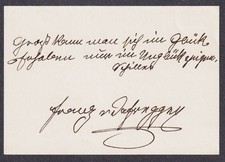 Groß kann man sich im Glück
erhaben nur im Unglück zeigen.
Schiller
Franz v Defregger